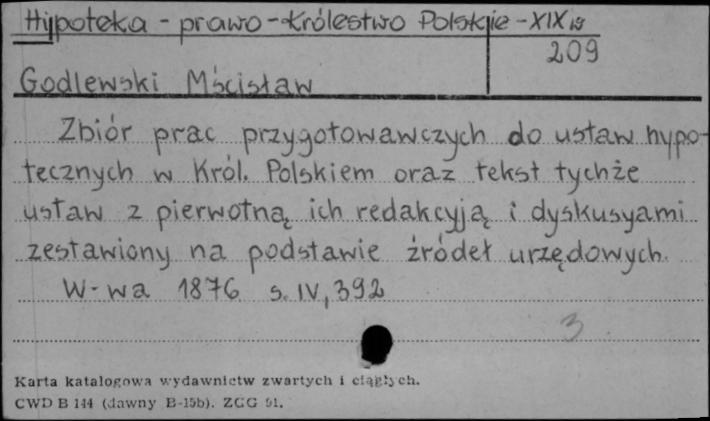 Hypoteka - prawo - Królestwo Polskie - XIX w
209
Godlewski Mścisław
Zbiór prac przygotowawczych do ustaw hypo-
tecznych w Król. Polskiem oraz tekst tychże
ustaw z pierwotną ich redakcyją i dyskusyami
zestawiony na podstawie źródeł urzędowych.
W-wa 1876 s. IV, 392
3
Karta katalogowa wydawnictw zwartych i ciągłych.
CWD B 144 (dawny B-15b). ZCG 91.